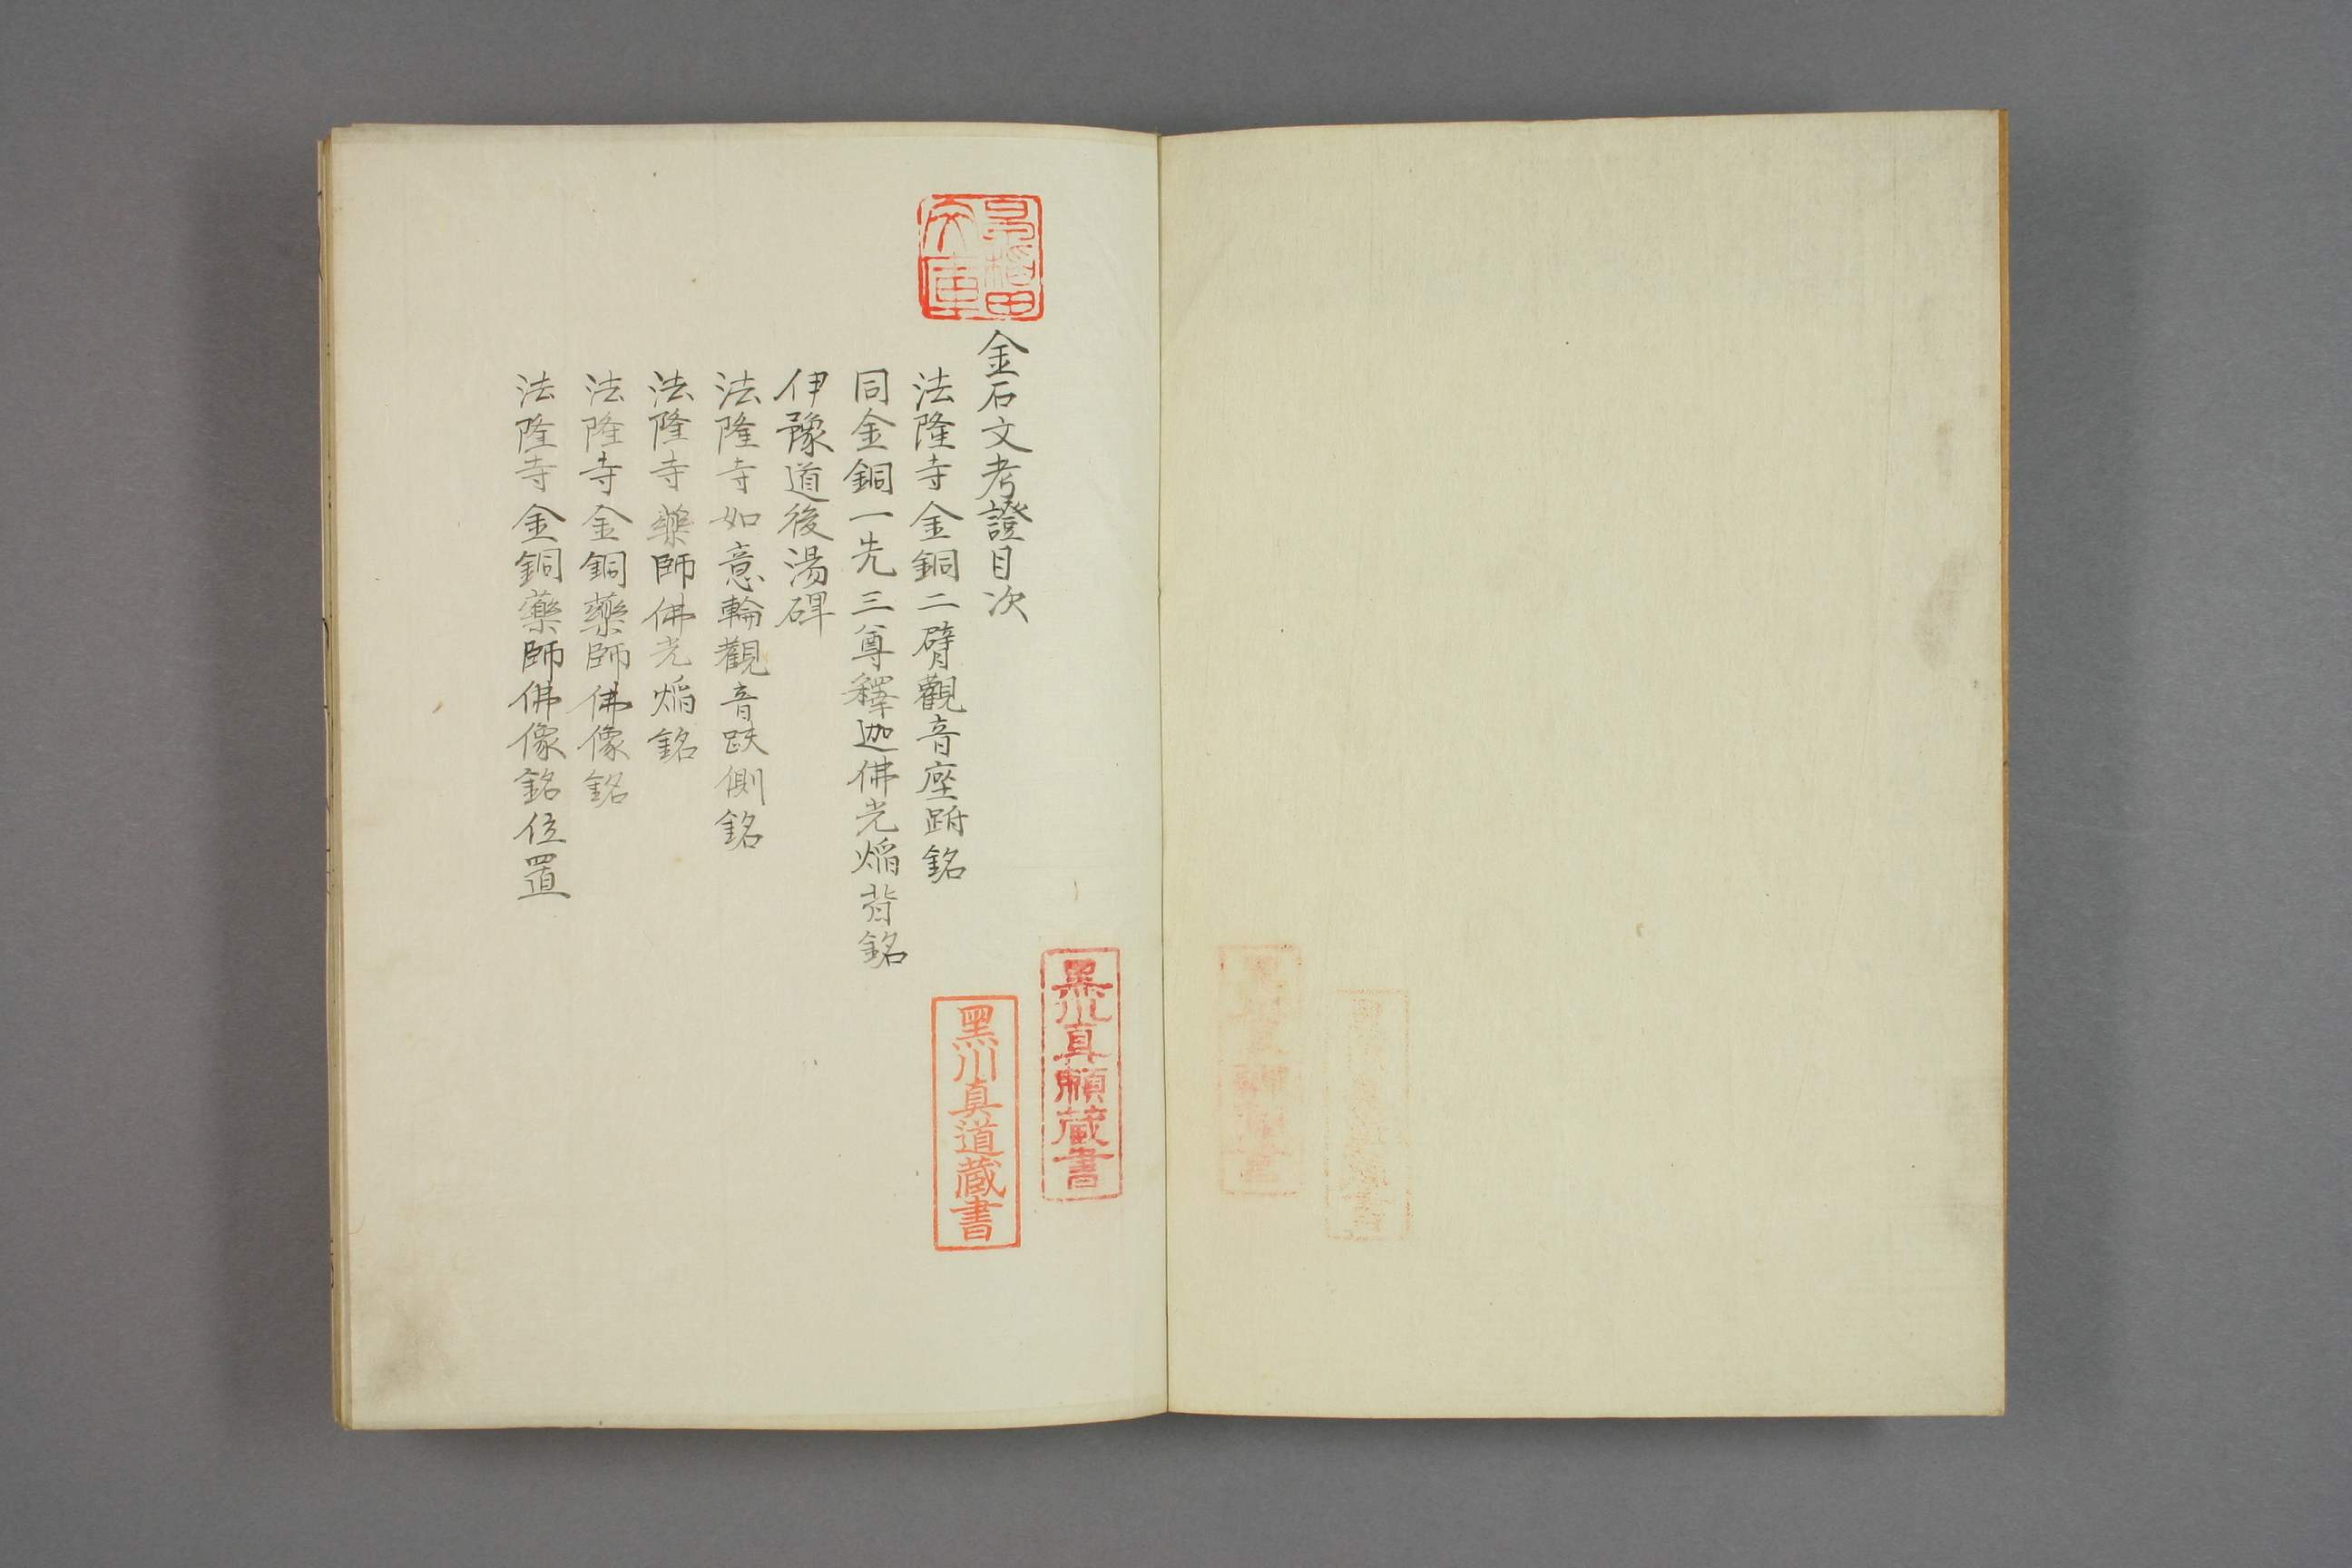 金石文考證目次
法隆寺金銅二臂觀音座跗銘
同金銅一光三尊釋迦佛光焔背銘
伊豫道後湯碑
法隆寺如意輪觀音趺側銘
法隆寺藥師佛光焔銘
法隆寺金銅藥師佛像銘
法隆寺金銅藥師佛像銘位置
早稲田
文庫
黒川真頼蔵書
黒川真道蔵書